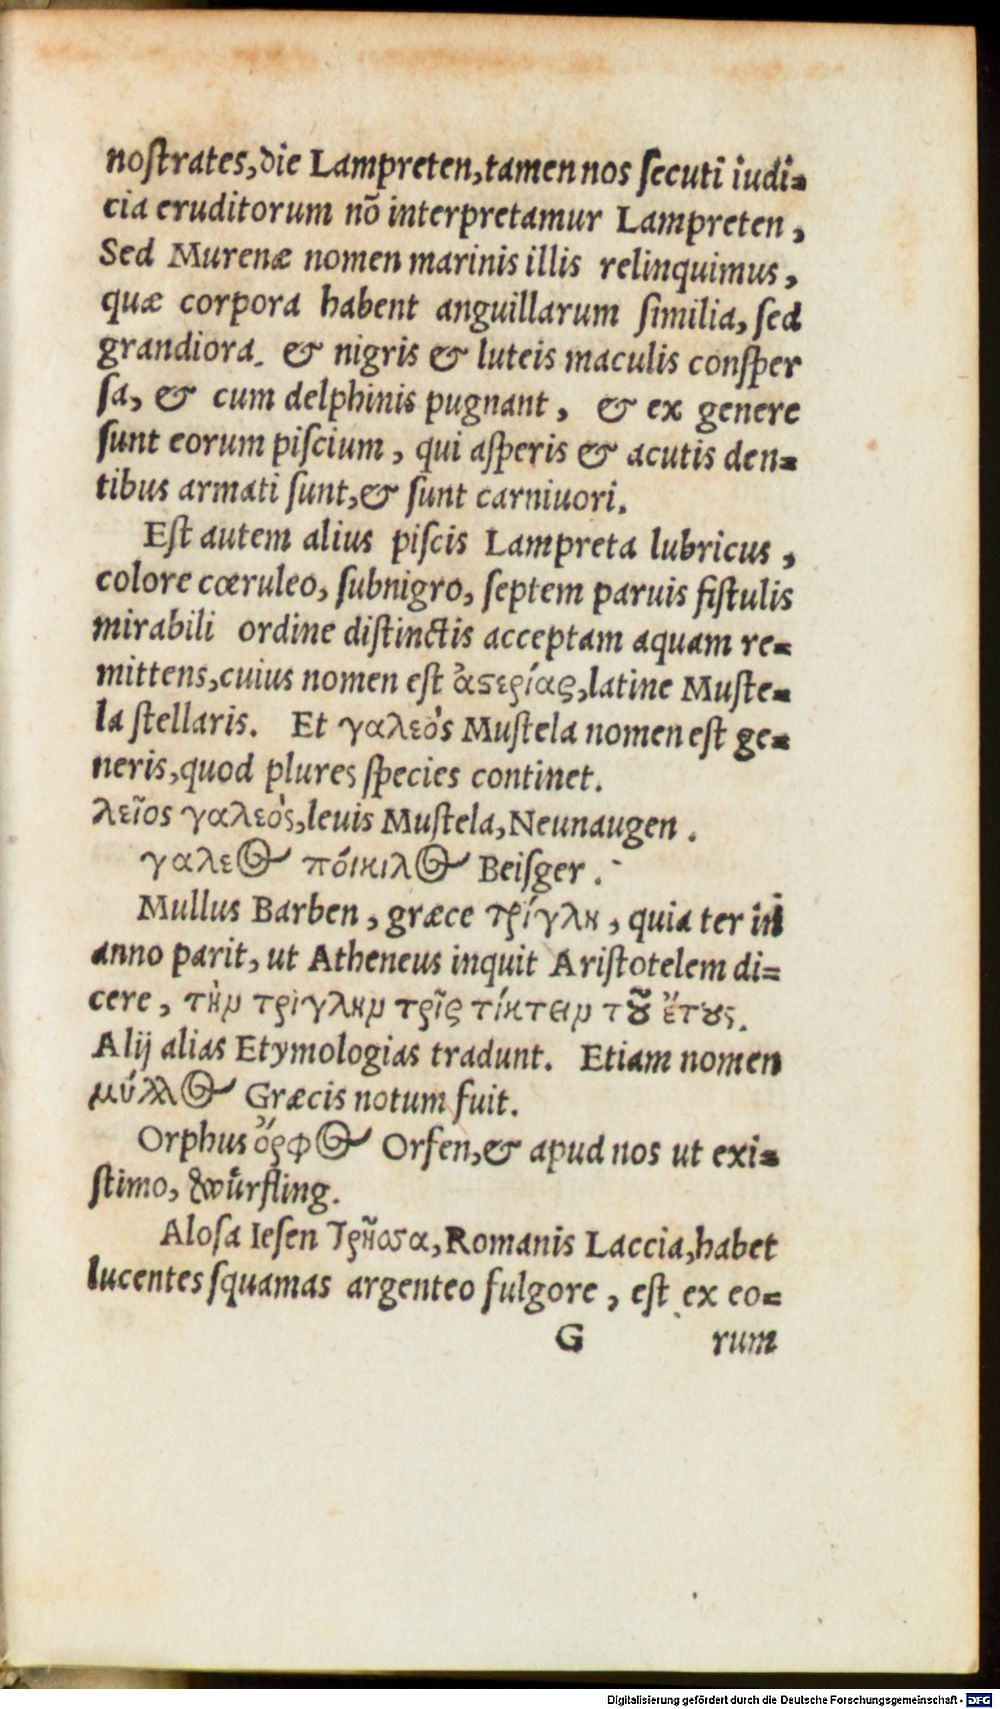 noſtrates, die Lampreten, tamen nos ſecuti iudi=
cia eruditorum nõ interpretamur Lampreten,
Sed Murenæ nomen marinis illis relinquimus,
quæ corpora habent anguillarum ſimilia, ſed
grandiora. & nigris & luteis maculis conſper
ſa, & cum delphinis pugnant, & ex genere
ſunt eorum piſcium, qui aſperis & acutis den=
tibus armati ſunt, & ſunt carniuori.
Eſt autem alius piſcis Lampreta lubricus,
colore cœruleo, ſubnigro, ſeptem paruis fiſtulis
mirabili ordine diſtinctis acceptam aquam re=
mittens, cuius nomen eſt ἀϛερίας, latine Muſte=
la ſtellaris. Et γαλεός Muſtela nomen eſt ge=
neris, quod plures ſpecies continet.
λεῖος γαλεός, leuis Muſtela, Neunaugen.
γαλεος ποίκιλος Beiſger.
Mullus Barben, græce τρίγλη, quia ter in
anno parit, ut Atheneus inquit Ariſtotelem di=
cere, τὴν τρίγλην τρὶς τίκτειν τοῦ ἔτους.
Alij alias Etymologias tradunt. Etiam nomen
μύλλος Græcis notum fuit.
Orphus ὄρφος Orfen, & apud nos ut exi=
ſtimo, Würfling.
Aloſa Ieſen Τρῆσσα, Romanis Laccia, habet
lucentes ſquamas argenteo fulgore, eſt ex eo=
G rum
Digitalisierung gefördert durch die Deutsche Forschungsgemeinschaft - DFG